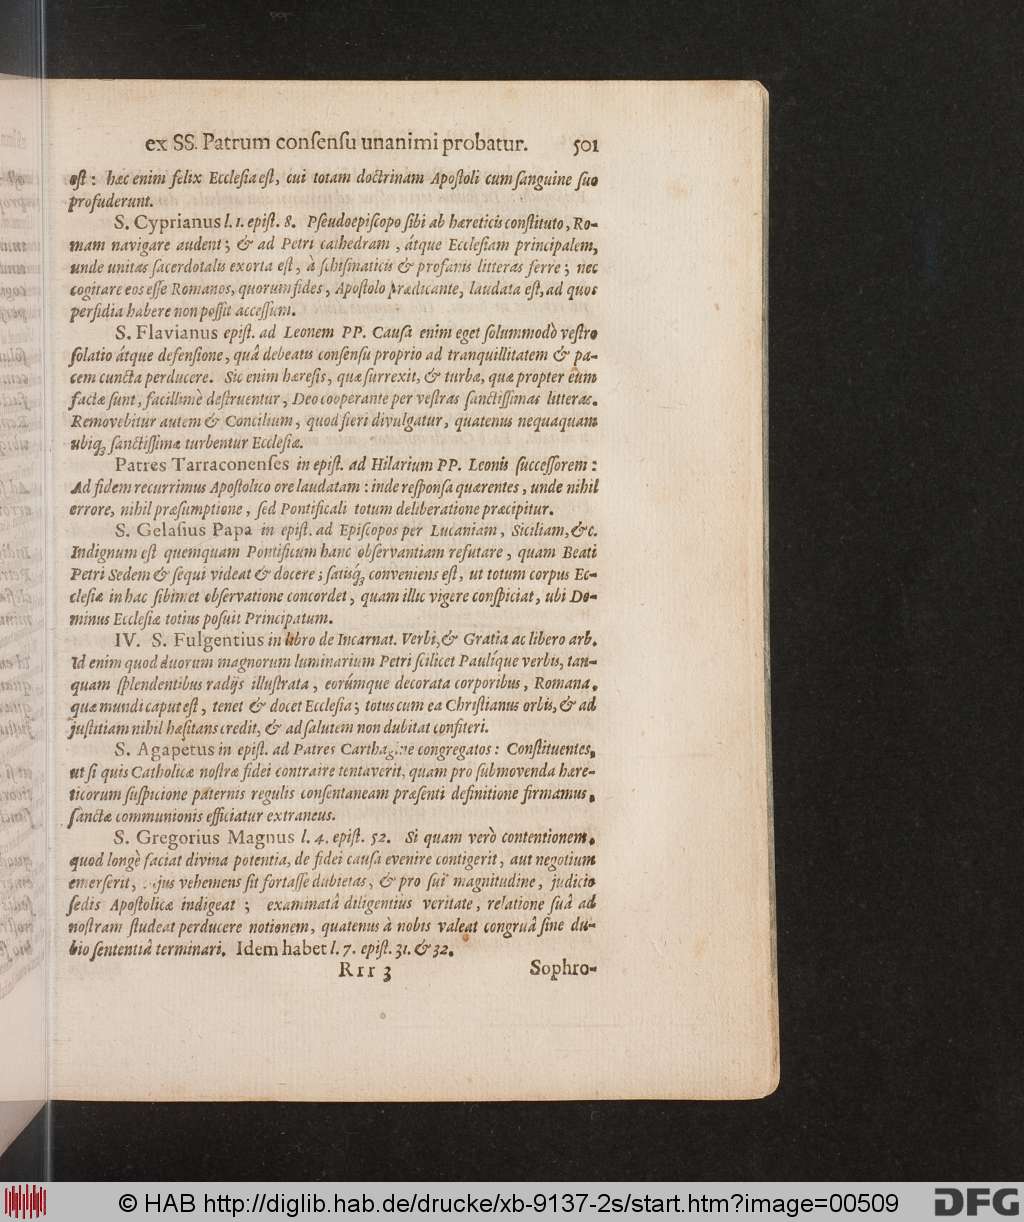 ex SS. Patrum consensu unanimi probatur. 501
est: hæc enim felix Ecclesia est, cui totam doctrinam Apostoli cum sanguine suo
profuderunt.
S. Cyprianus l. 1. epist. 8. Pseudoepiscopo sibi ab hæreticis constituto, Ro-
mam navigare audent; & ad Petri cathedram, átque Ecclesiam principalem,
unde unitas sacerdotalis exorta est, à schismaticis & profanis litteras ferre; nec
cogitare eos esse Romanos, quorum fides, Apostolo prædicante, laudata est, ad quos
perfidia habere non possit accessum.
S. Flavianus epist. ad Leonem PP. Causa enim eget solummodò vestro
solatio átque defensione, quâ debeatis consensu proprio ad tranquillitatem & pa-
cem cuncta perducere. Sic enim hæresis, quæ surrexit, & turbæ, quæ propter eum
factæ sunt, facillimè destruentur, Deo cooperante per vestras sanctissimas litteras.
Removebitur autem & Concilium, quod fieri divulgatur, quatenus nequaquam
ubiq; sanctissimæ turbentur Ecclesiæ.
Patres Tarraconenses in epist. ad Hilarium PP. Leonis successorem:
Ad fidem recurrimus Apostolico ore laudatam: inde responsa quærentes, unde nihil
errore, nihil præsumptione, sed Pontificali totum deliberatione præcipitur.
S. Gelasius Papa in epist. ad Episcopos per Lucaniam, Siciliam, &c.
Indignum est quemquam Pontificum hanc observantiam refutare, quam Beati
Petri Sedem & sequi videat & docere; satisq́; conveniens est, ut totum corpus Ec-
clesiæ in hac sibimet observatione concordet, quam illic vigere conspiciat, ubi Do-
minus Ecclesiæ totius posuit Principatum.
IV. S. Fulgentius in libro de Incarnat. Verbi, & Gratia ac libero arb.
Id enim quod duorum magnorum luminarium Petri scilicet Paulíque verbis, tan-
quam splendentibus radijs illustrata, eorúmque decorata corporibus, Romana,
quæ mundi caput est, tenet & docet Ecclesia; totus cum ea Christianus orbis, & ad
justitiam nihil hæsitans credit, & ad salutem non dubitat confiteri.
S. Agapetus in epist. ad Patres Carthagine congregatos: Constituentes,
ut si quis Catholicæ nostræ fidei contraire tentaverit, quam pro submovenda hære-
ticorum suspicione paternis regulis consentaneam præsenti definitione firmamus,
sanctæ communionis efficiatur extraneus.
S. Gregorius Magnus l. 4. epist. 52. Si quam verò contentionem,
quod longè faciat divina potentia, de fidei causa evenire contigerit, aut negotium
emerserit, cujus vehemens sit fortasse dubietas, & pro sui magnitudine, judicio
sedis Apostolicæ indigeat; examinatâ diligentius veritate, relatione suâ ad
nostram studeat perducere notionem, quatenus à nobis valeat congruâ sine du-
bio sententiâ terminari. Idem habet l. 7. epist. 31. & 32.
Rrr 3 Sophro-
© HAB http://diglib.hab.de/drucke/xb-9137-2s/start.htm?image=00509
DFG